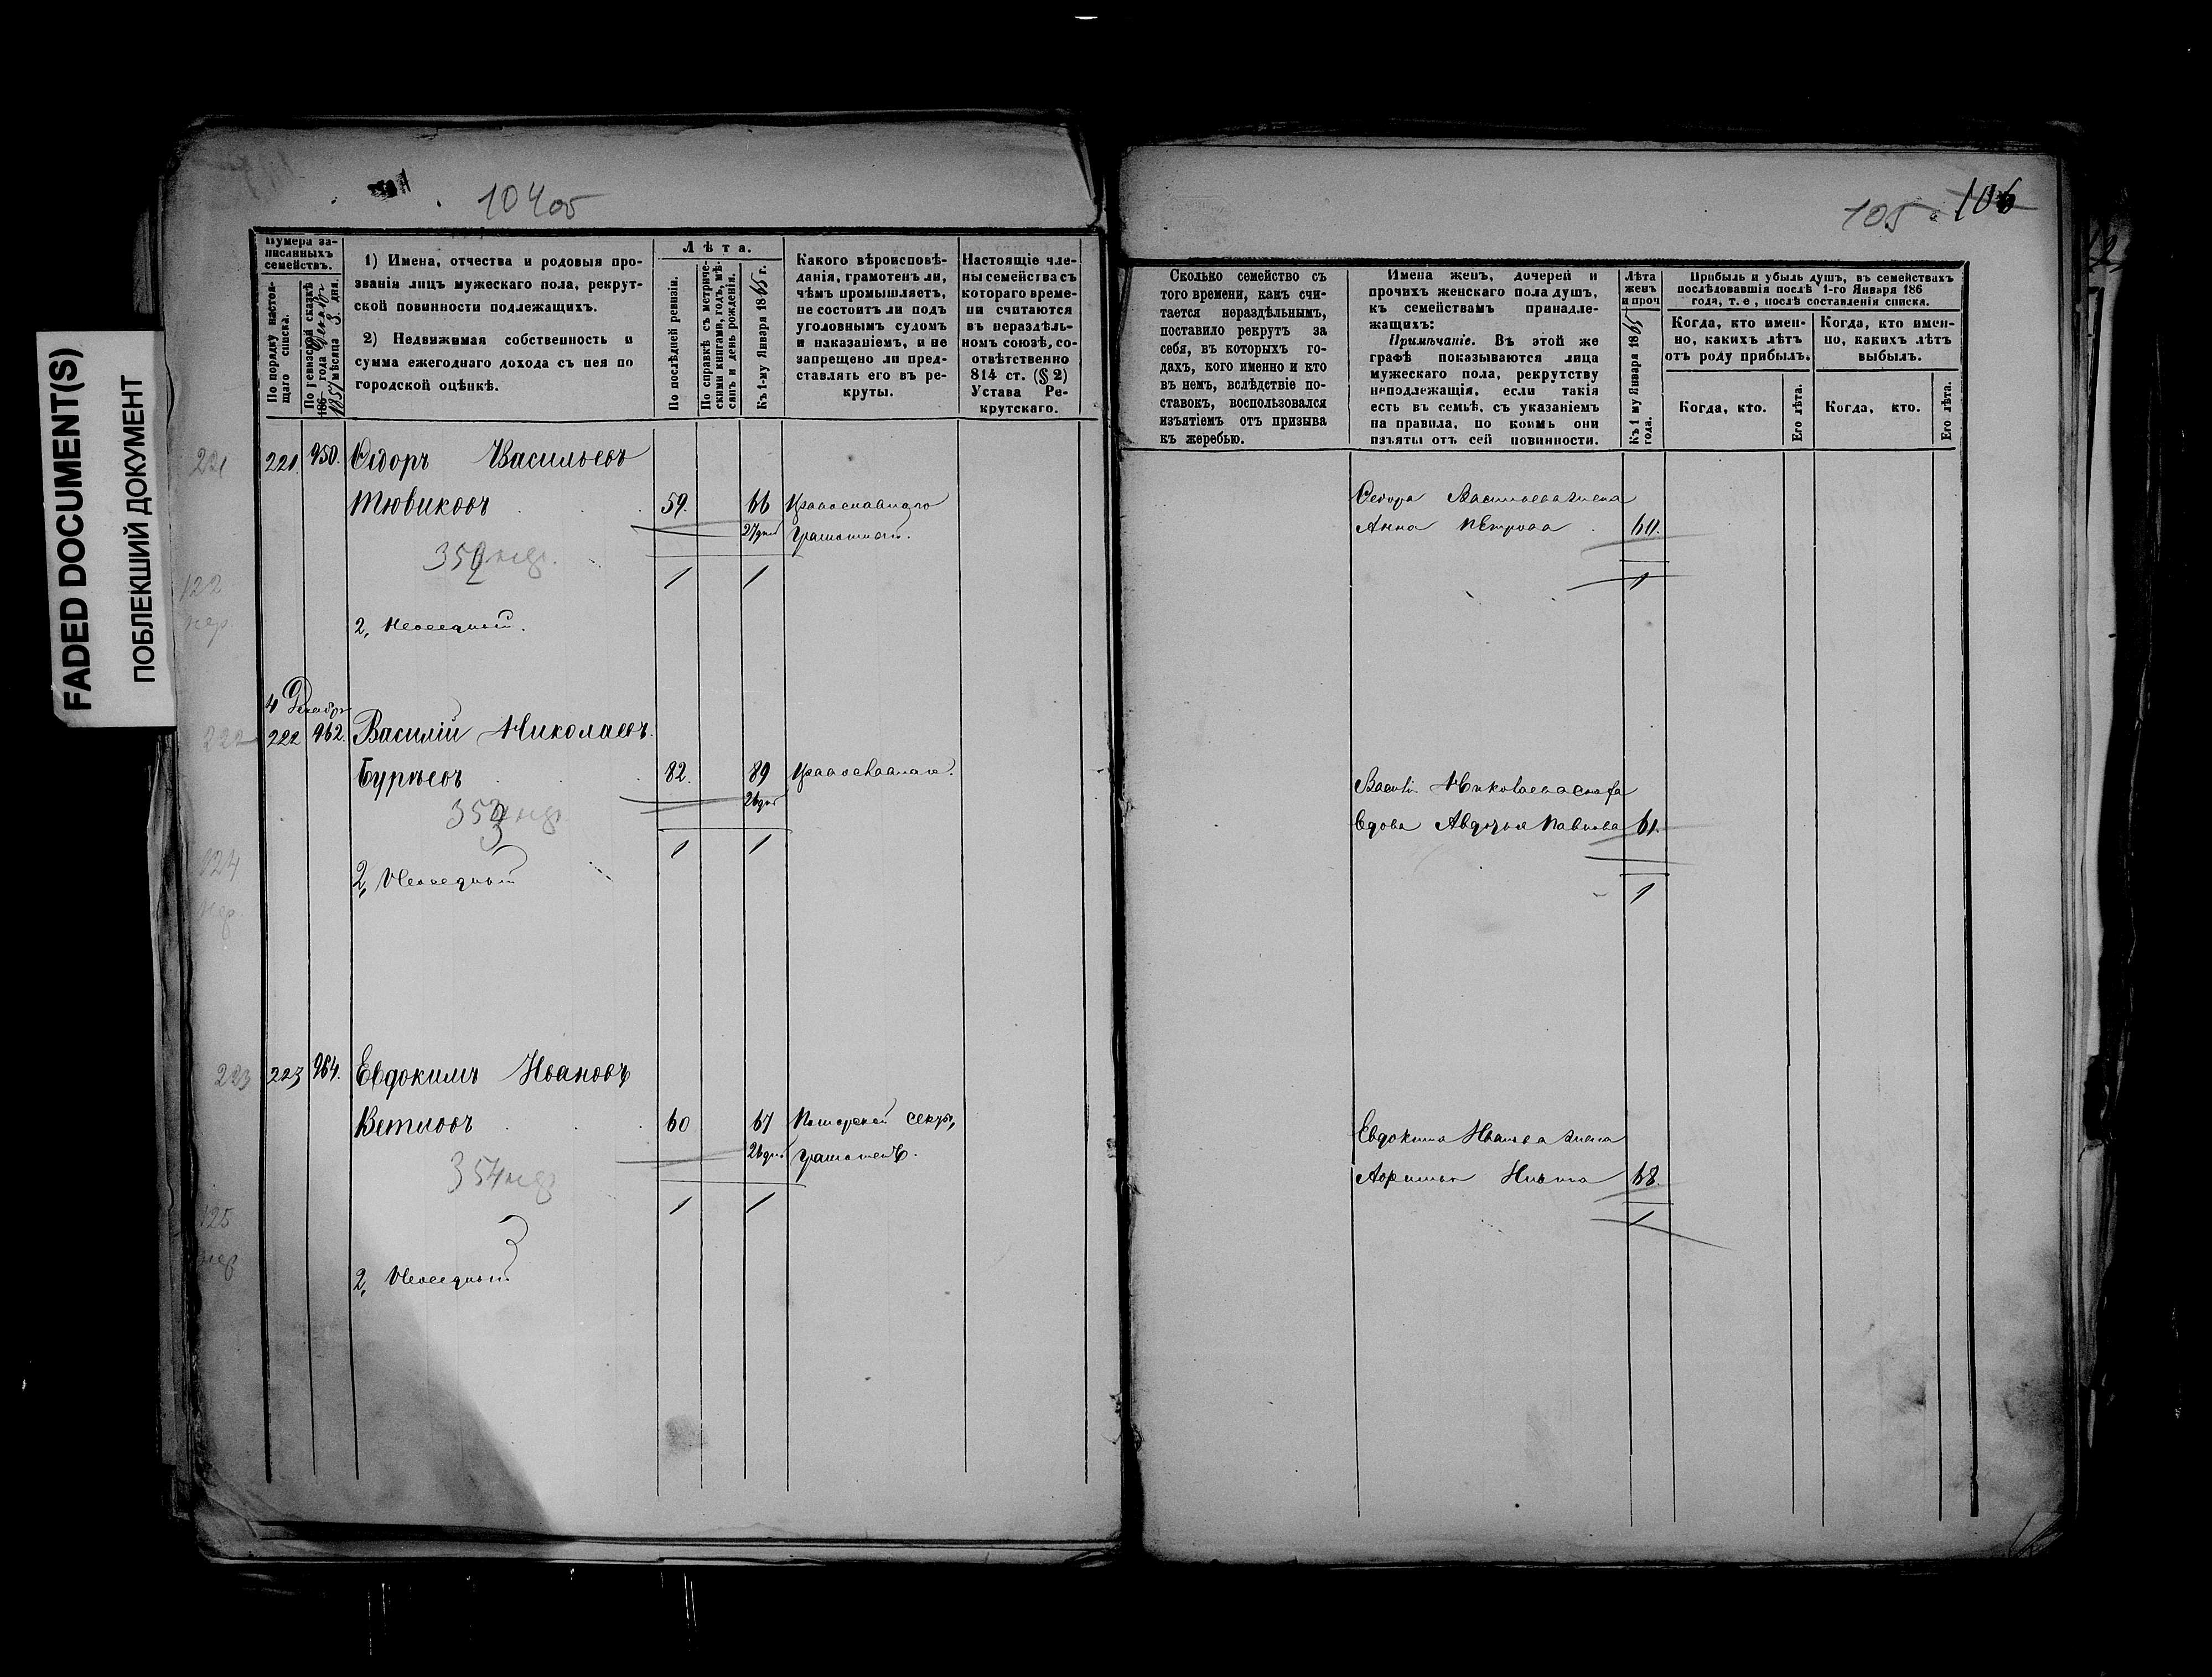 FADED DOCUMENT(S)
ПОБЛЕКШИЙ ДОКУМЕНТ
104об
Нумера за-
писанныхъ
семействъ.
По порядку настоя-
щаго списка.
По ревизской сказкѣ
186 года Декабря
1857 мѣсяца 3. дня.
1) Имена, отчества и родовыя про-
званія лицъ мужескаго пола, рекрут-
ской повинности подлежащихъ.
2) Недвижимая собственность и
сумма ежегоднаго дохода съ нея по
городской оцѣнкѣ.
Лѣта.
По послѣдней ревизіи.
По справкѣ съ метриче-
скими книгами, годъ, мѣ-
сяцъ и день рожденія.
Къ 1-му Января 1865 г.
Какого вѣроисповѣ-
данія, грамотенъ ли,
чѣмъ промышляетъ,
не состоитъ ли подъ
уголовнымъ судомъ
и наказаніемъ, и не
запрещено ли пред-
ставлять его въ ре-
круты.
Настоящіе чле-
ны семейства съ
котораго време-
ни считаются
въ нераздѣль-
номъ союзѣ, со-
отвѣтственно
814 ст. (§ 2)
Устава Ре-
крутскаго.
221 221. 950. Ѳедоръ Васильевъ
Тювиковъ 59. 66 Православнаго
27 дня Грамотной.
352
1 1
122
нер.
2, Неоседлый.
4 Декабря
222 222 962. Василій Николаевъ
Бурѣевъ 82. 89 Православнаго.
26 дня
353
1 1
124
нер.
2, Неоседлый
223 223 964. Евдокимъ Ивановъ
Ветловъ 60 67 Поморской секты,
26 дня грамотенъ.
354
1 1
125
нер
2, Неоседлый
105 106
Сколько семейство съ
того времени, какъ счи-
тается нераздѣльнымъ,
поставило рекрутъ за
себя, въ которыхъ го-
дахъ, кого именно и кто
въ немъ, вслѣдствіе по-
ставокъ, воспользовался
изъятіемъ отъ призыва
къ жеребью.
Имена женъ, дочерей и
прочихъ женскаго пола душъ,
къ семействамъ принадле-
жащихъ:
Примѣчаніе. Въ этой же
графѣ показываются лица
мужескаго пола, рекрутству
неподлежащія, если такія
есть въ семьѣ, съ указаніемъ
на правила, по коимъ они
изъяты отъ сей повинности.
Лѣта
женъ
и проч
Къ 1 му Января 1865
года.
Прибыль и убыль душъ, въ семействахъ
послѣдовавшія послѣ 1-го Января 186
года, т. е., послѣ составленія списка.
Когда, кто имен-
но, какихъ лѣтъ
отъ роду прибылъ.
Когда, кто имен-
но, какихъ лѣтъ
выбылъ.
Когда, кто.
Его лѣта.
Когда, кто.
Его лѣта.
Ѳедора Васильева жена
Анна Петрова 60.
1
Васил. Николаева сноха
вдова Авдотья Павлова 61.
1
Евдокима Иванова жена
68.
1